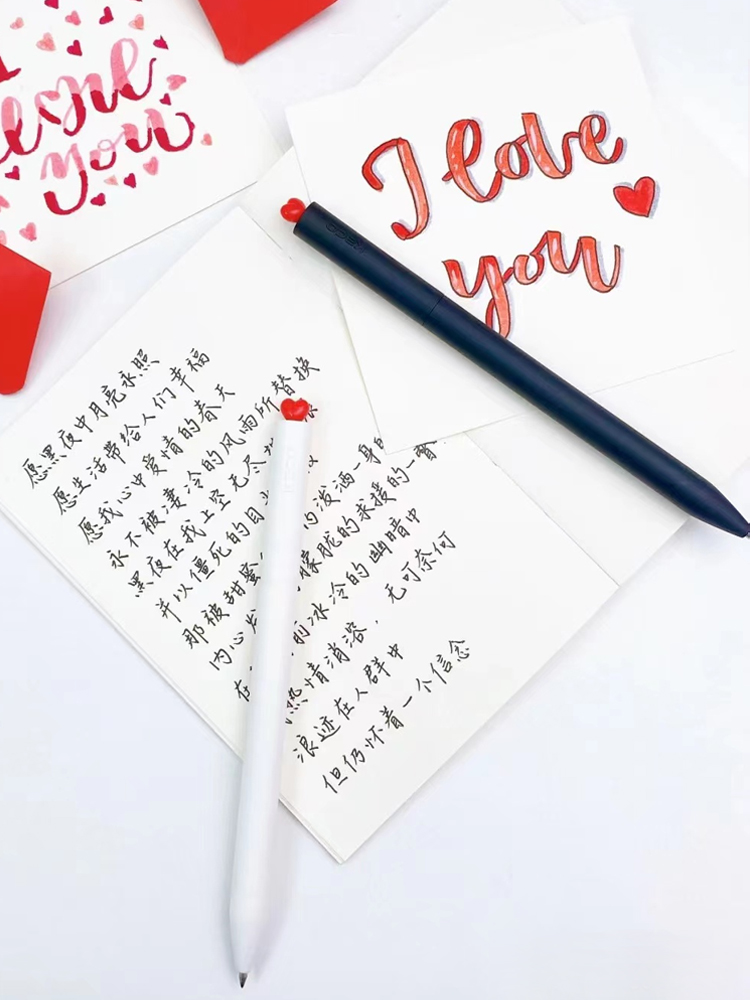 you
I love
you
愿黑夜中月亮永照
愿生活带给人们幸福
愿我心中爱情的春天
永不被凄冷的风雨所替换
黑夜在我上空无尽
并以僵死的目
那被甜蜜 内泼洒一身的
内心发 朦胧的求援的一瞥
在 冰冷的幽暗中
热情消溶，无可奈何
浪迹在人群中
但仍怀着一个信念